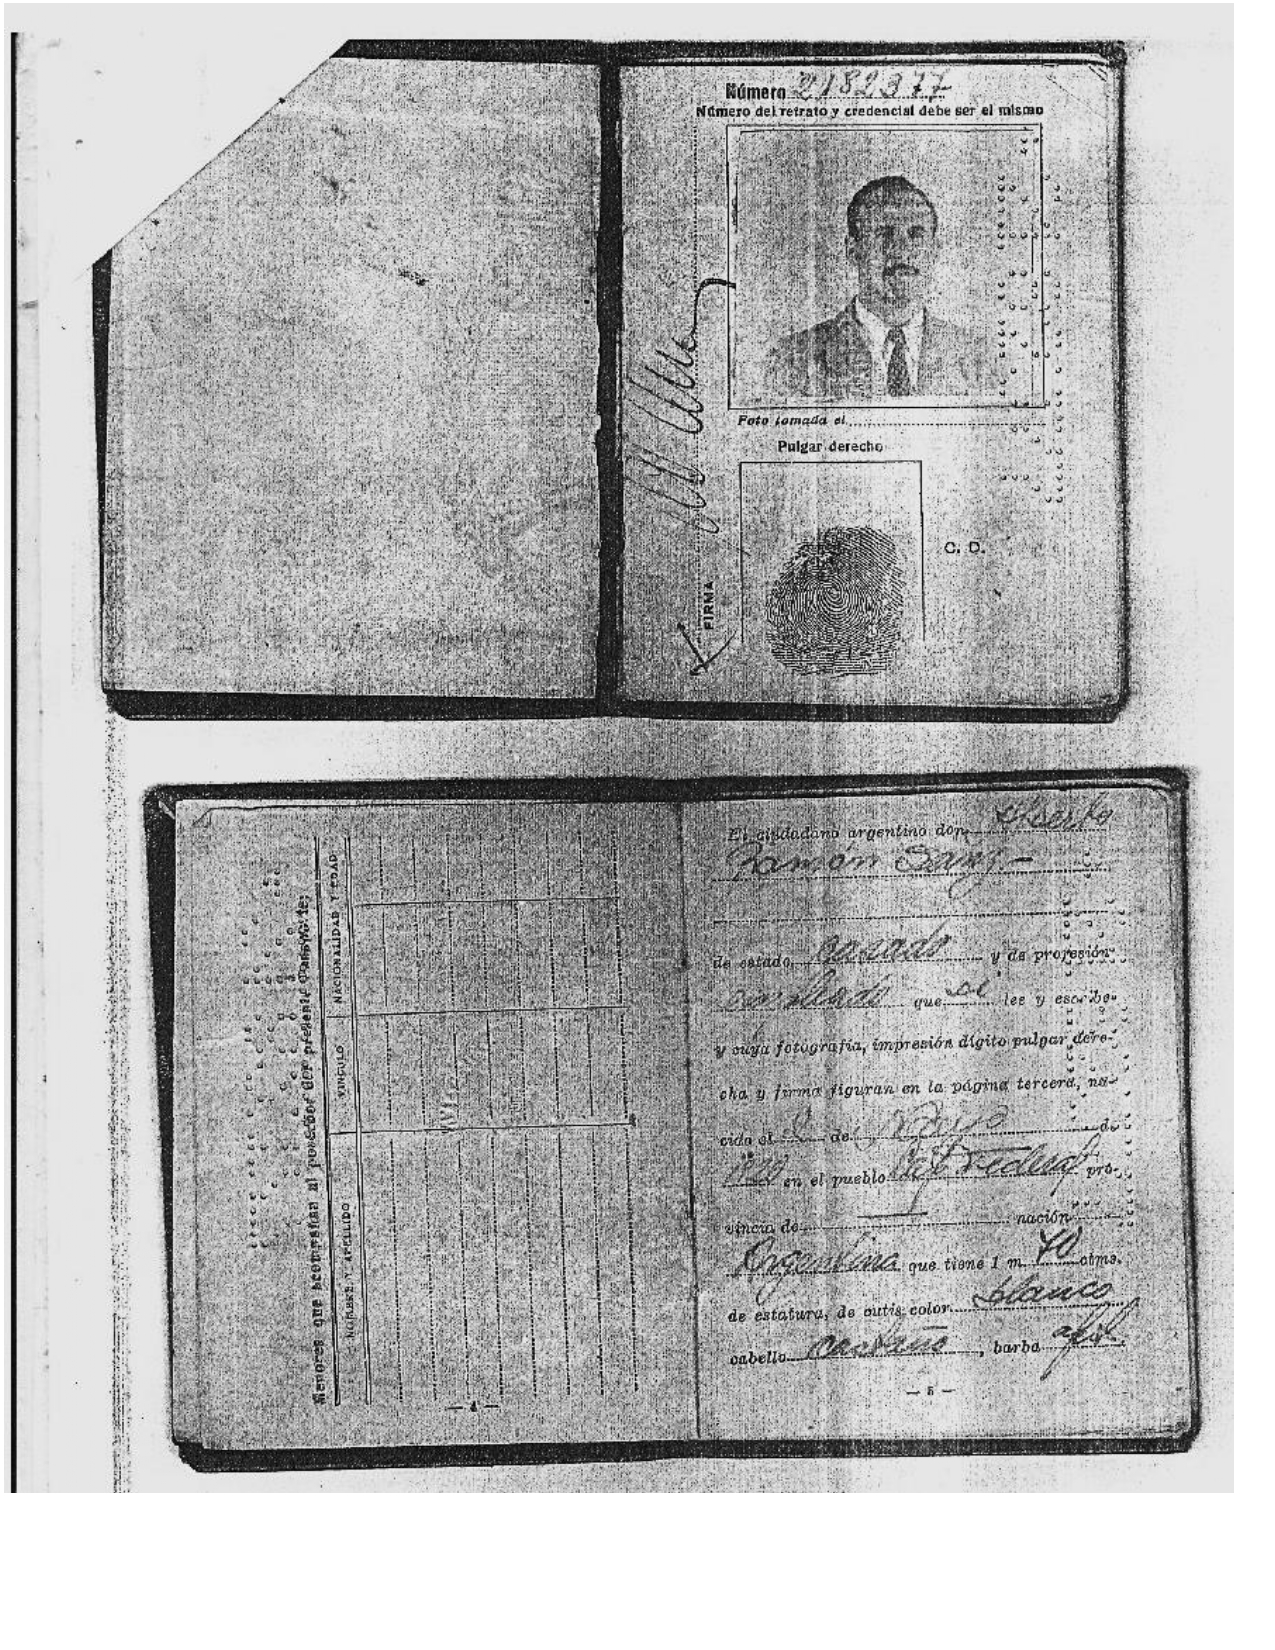 Número 2182377
Número del retrato y credencial debe ser el mismo
Foto tomada el
Pulgar derecho
C. D.
FIRMA
Menores que acompañan al poseedor del presente pasaporte:
NOMBRE Y APELLIDO VINCULO NACIONALIDAD Y EDAD
— 4 —
El ciudadano argentino don
Ramón Sanz -
de estado casado y de profesión
empleado que sí lee y escribe
y cuya fotografía, impresión dígito pulgar dere-
cha y firma figuran en la página tercera, na-
cido el de Mayo de
en el pueblo Cap Federal pro-
vincia de — nación
Argentina que tiene 1 m. 70 ctms.
de estatura, de cutis color blanco
cabello castaño, barba afei
— 5 —